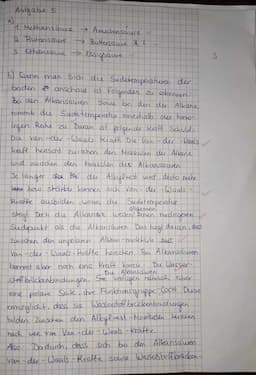 Aufgabe 5
a)
1. Methansäure → Ameisensäure
2. Butansäure → Buttersäure
3. Ethansäure → Essigsäure
3
b) Wenn man sich die Siedetemperaturen der
beiden anschaut ist folgendes zu erkennen.
Bei den Alkansäuren sowie bei den der Alkane
nimmt die Siedetemperatur innerhalb der homo-
logen Reihe zu. Daran ist folgende Kraft Schuld:
Die Van-der-Waals Kraft. Die Van-der-Waals
kraft herrscht zwischen den Molekülen der Alkane
und zwischen den Molekülen der Alkansäuren.
Je länger der Alkylrest wird, desto mehr
bzw stärker können sich Van-der-Waals-
Kräfte ausbilden, wenn die Siedetemperatur
steigt. Doch die Alkane weisen einen niedrigeren
Siedepunkt als die Alkansäuren. Das liegt daran, das
zwischen den unpolaren Alkan-molekülen
Van-der-Waals-Kräfte herrschen. Bei Alkansäuren
kommt aber noch eine Kraft hinzu. Die Wasser-
stoffbrückenbindungen. Die Alkansäuren
eine polare Seite, ihre Funktionsgruppe COOH. Diese
ermöglicht, dass sie Wasserstoffbrückenbindungen
bilden. Zwischen den Alkylrest-Molekülen herrschen
nach wie vor Van-der-Waals-Kräfte.
Also: Dadurch, dass sich bei den Alkansäuren
Van-der-Waals-Kräfte sowie Wasserstoffbrücken-